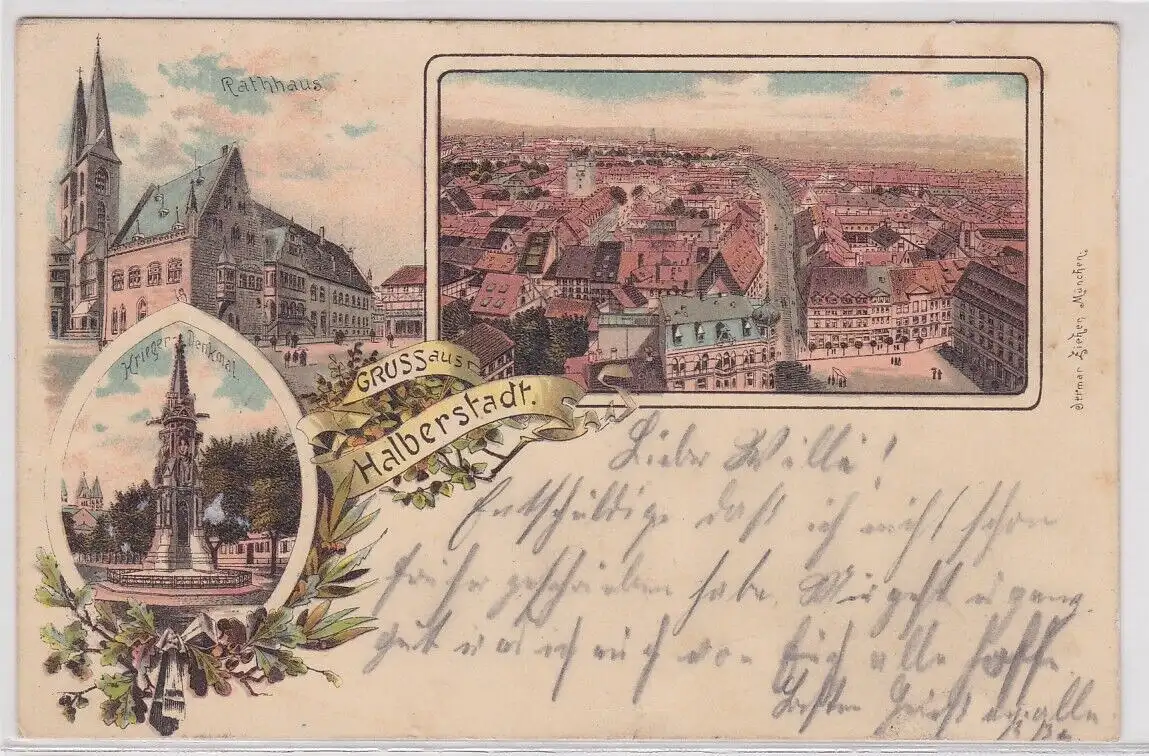 Rathhaus
Krieger-Denkmal.
GRUSS aus
Halberstadt.
Ottmar Ziehen München.
Lieber Willi!
Entschuldige daß ich nicht schon
früher geschrieben habe. Mir geht es ganz
gut was ich auch von Euch alle hoffe.
Besten Gruß an alle